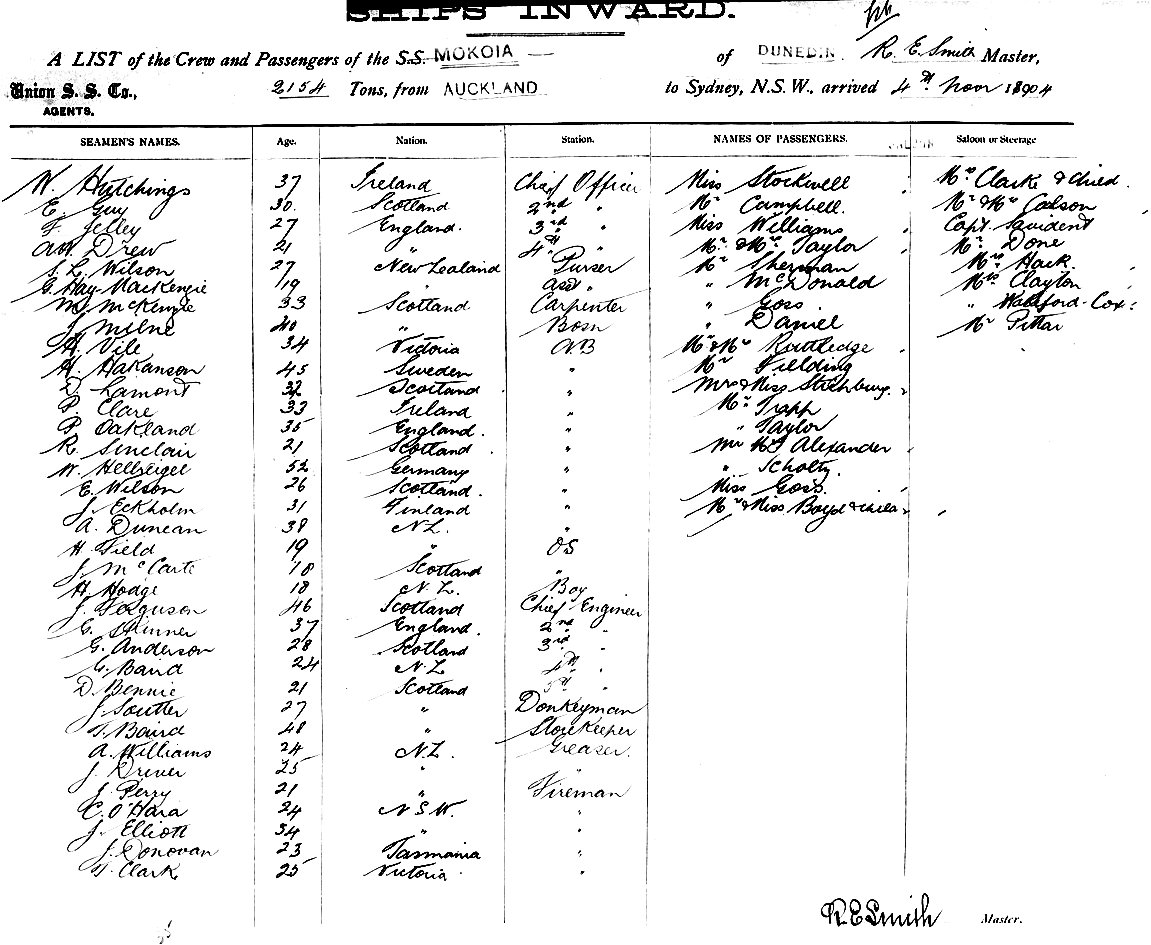 SHIPS INWARD.
A LIST of the Crew and Passengers of the S.S. MOKOIA of DUNEDIN R. E. Smith Master,
Union S. S. Co., 2154 Tons, from AUCKLAND to Sydney, N.S.W., arrived 4th Nov 1904
AGENTS.
SEAMEN'S NAMES. Age. Nation. Station. NAMES OF PASSENGERS. Saloon or Steerage
W. Hutchings 37 Ireland Chief Officer Miss Stockwell Mrs Clarke & Child
E. Guy 30 Scotland 2nd " Mr Campbell. Mr & Mrs Colson
F. Jelley 27 England. 3rd " Miss Williams Capt.
Drew 21 " 4th " Mr & Mrs Taylor Mr Done
S. L. Wilson 27 New Zealand Purser Mr Sherman Mrs Hack.
G. Hay MacKenzie 19 " Asst " " McDonald Mrs Clayton
M. McKenzie 33 Scotland Carpenter " Goss "
J. Milne 40 " Bosn " Daniel Mr Pittar
H. Vile 34 Victoria A.B Mr & Mrs Routledge
H. Hakanson 45 Sweden " Mr Fielding
D. Lamont 32 Scotland " Mrs & Miss
P. Clare 33 Ireland " Mr Trapp
P. Oakland 35 England. " " Taylor
R. Sinclair 21 Scotland " Alexander
W. Hellreigel 52 Germany " "
E. Wilson 26 Scotland. " Miss Goss.
J. Eckholm 31 Finland " & Miss Boyd & child
A. Duncan 38 N.Z. "
H. Field 19 " OS
J. McCarte 18 Scotland "
H. Hodge 18 N.Z. Boy
J. Ferguson 46 Scotland Chief Engineer
E. Skinner 37 England. 2nd "
G. Anderson 28 Scotland 3rd "
G. Baird 24 N.Z. 4th "
D. Bennie 21 Scotland 5th "
J. Soutter 27 " Donkeyman
T. Baird 48 " Storekeeper
A. Williams 24 N.Z. Greaser.
J. Drever 25 " "
J. Perry 21 " Fireman
C. O'Hara 24 N S W. "
J. Elliott 34 " "
J. Donovan 23 Tasmania "
T. Clark 25 Victoria "
R E Smith Master.